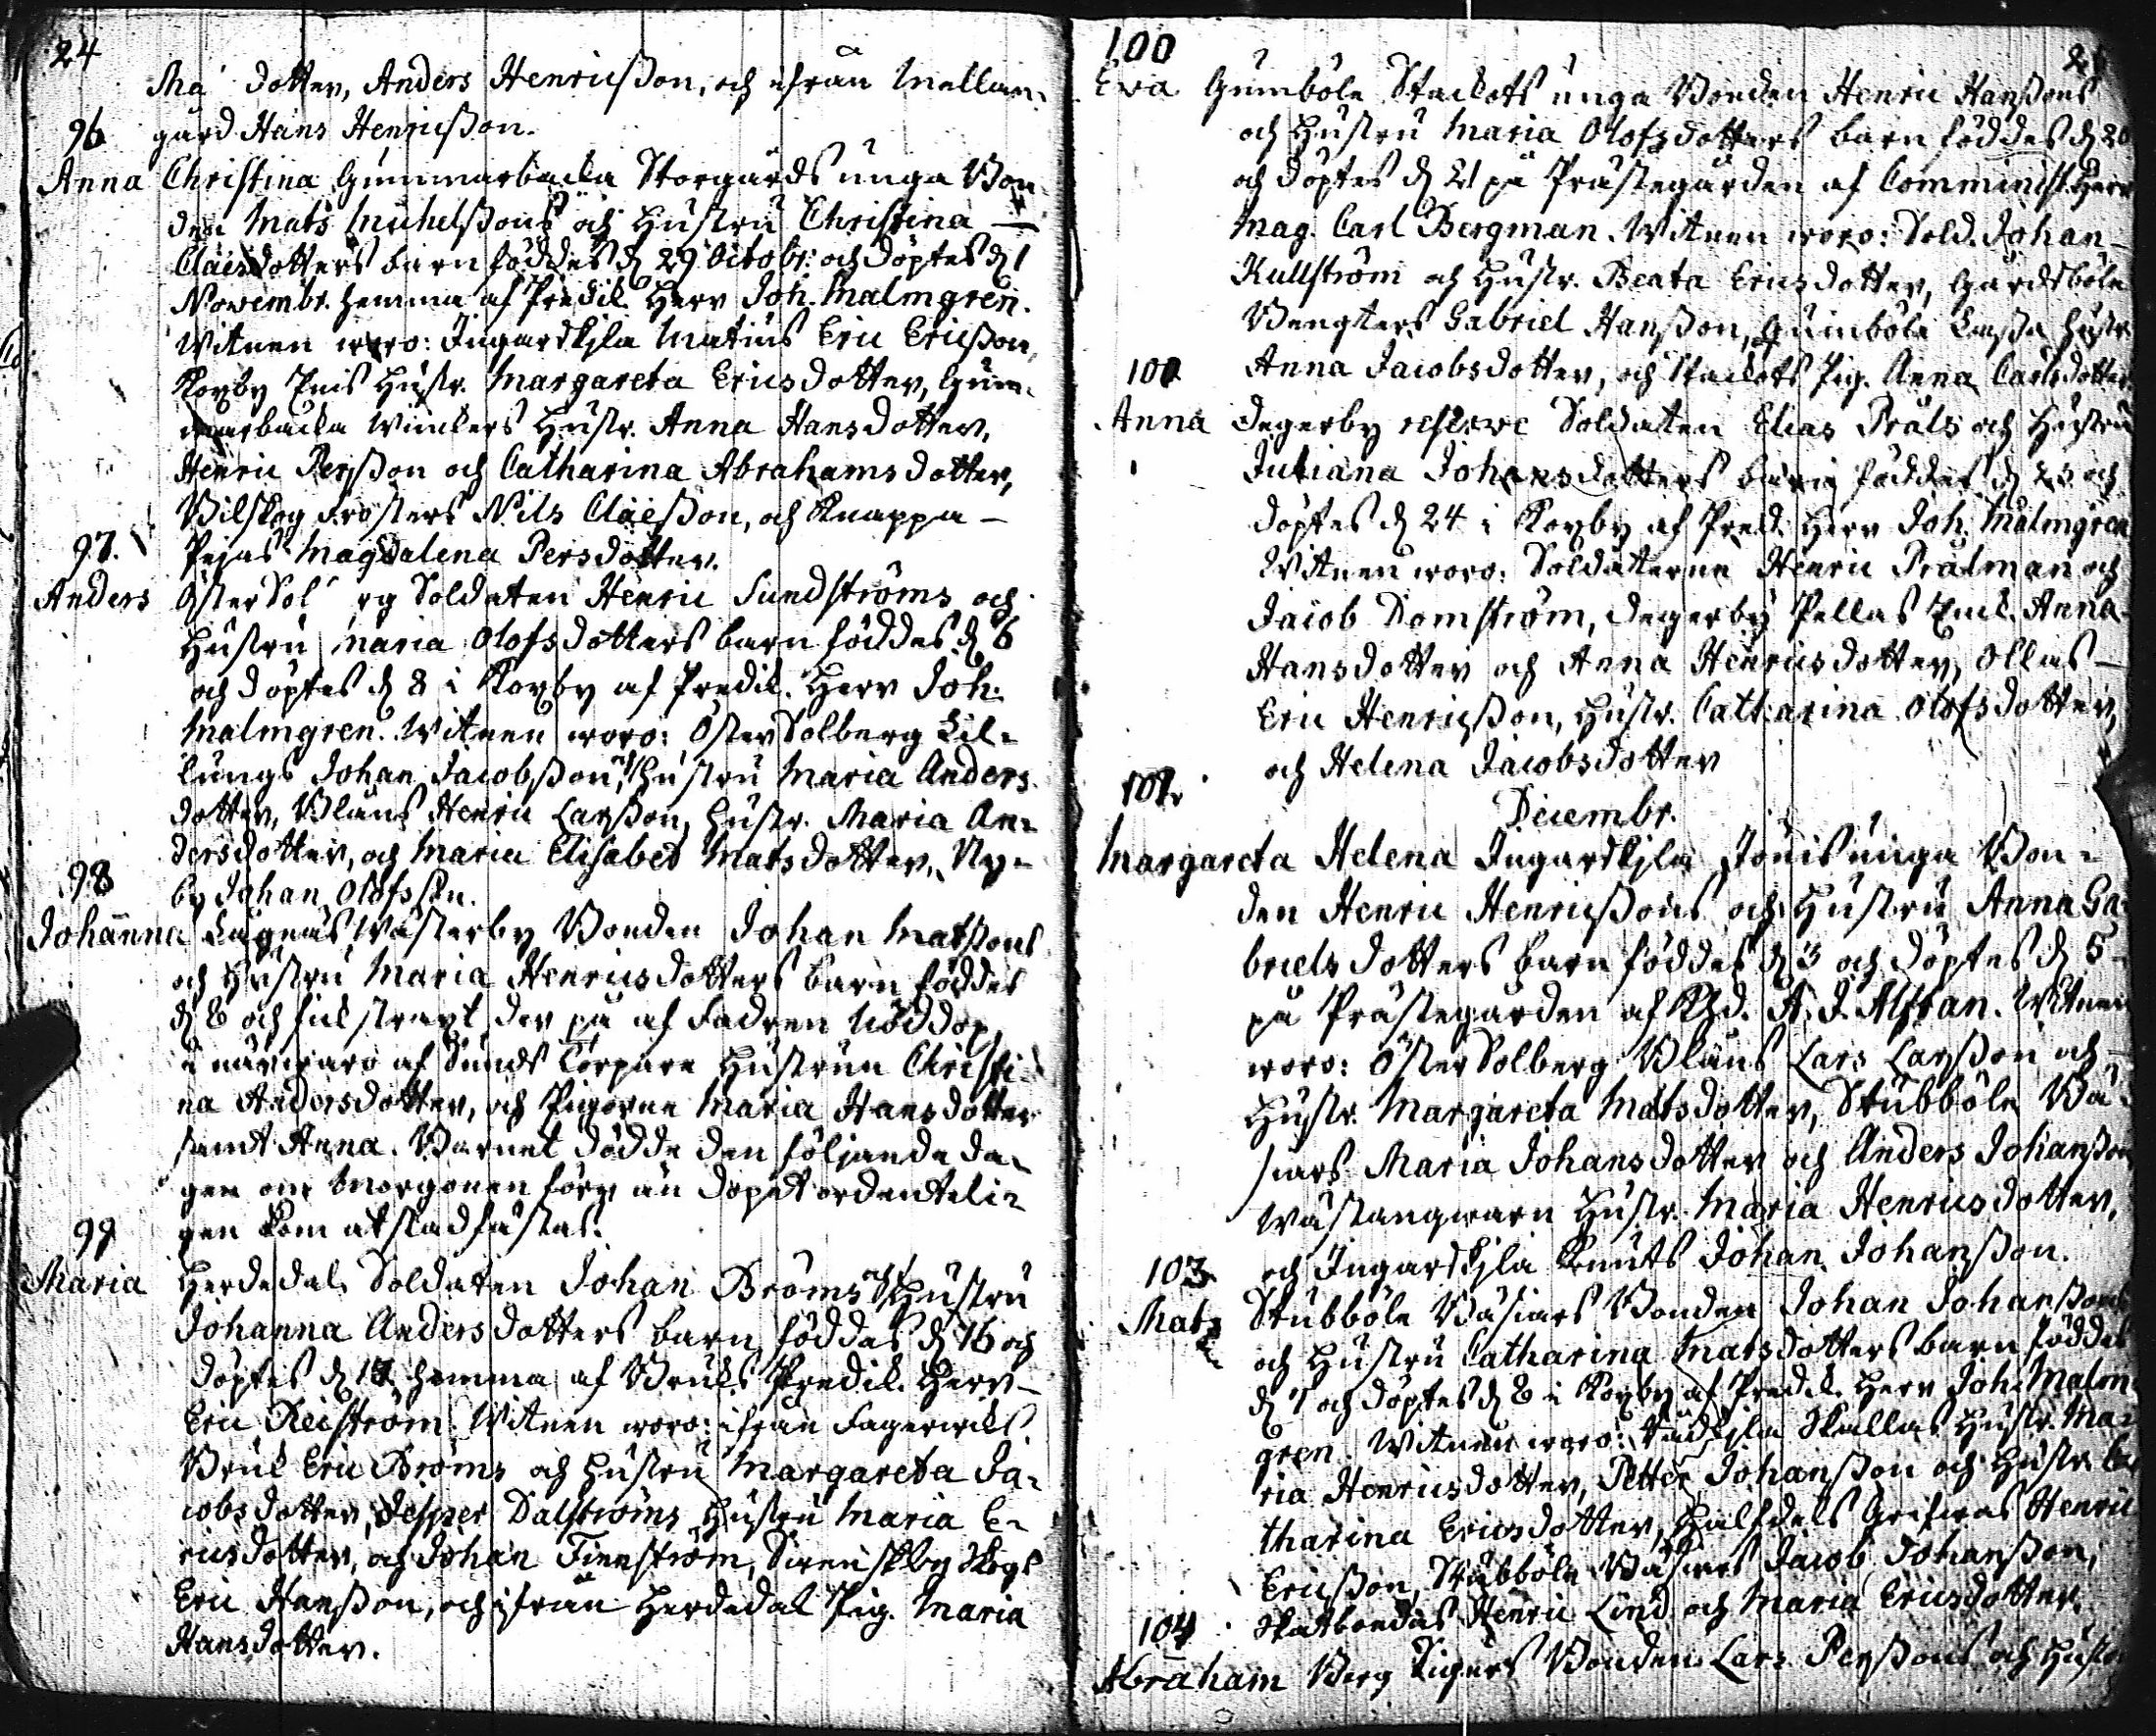 24
dotter, Anders Henricsson, och ifrån Mellan-
gård Hans Henricsson.
96
Anna Christina Gunnarbacka Storgårds unga Bon-
den Mats Michelssons och Hustru Christina
Claesdotters barn föddes d. 29 Octobr. och döptes d. 1
Novembr. hemma af Predik. Herr Joh. Malmgren.
Witnen woro: Ingarskjla Matius Eric Ericsson,
Kyrby Hustr. Margareta Ericsdotter, Gun-
narbacka Winkers Hustr. Anna Hansdotter,
Henric Persson och Catharina Abrahamsdotter,
Bilskog Frösters Nils Claesson, och Knappa-
97.
Pejas Magdalena Persdotter.
Anders ÖsterSol rg Soldaten Henric Sundströms och
Hustru Maria Olofsdotters barn föddes d. 6
och döptes d. 8 i Kyrby af Predik. Herr Joh.
Malmgren. Witnen woro: ÖsterSolberg Lil-
lungs Johan Jacobsson, Hustru Maria Anders
dotter, Bläus Henric Larsson, Hustr. Maria An-
dersdotter, och Maria Elisabet Matsdotter, Ny-
98
by Johan Olofsson.
Johanna Lågnäs Wästerby Bonden Johan Matssons
och Hustru Maria Henricsdotters barn föddes
d. 6 och fick straxt der på af Fadren Nöddop,
i närwaro af Sunds Torpare Hustrun Christi-
na Andersdotter, och Pigorne Maria Hansdotter
samt Anna. Barnet dödde den följande da-
gen om Morgonen förr än dopet ordenteli-
99
gen kom at stadfästas.
Maria Herdedal Soldaten Johan Bröms och Hustru
Johanna Andersdotters barn föddes d. 16 och
döptes d. 17 hemma af Bruks Predik. Herr
Eric Reiström. Witnen woro: ifrån Fagerwiks
Bruk Eric Bröms och Hustru Margareta Ja-
cobsdotter, Jesper Dalströms Hustru Maria E-
ricsdotter, och Johan Finnström, Swenskby Skogs
Eric Hansson, och ifrån Herdedal Pig. Maria
Hansdotter.
100
Eva Gumböle Stackots unga Bonden Henric Hanssons
och Hustru Maria Olofsdotters barn föddes d. 20
och döptes d. 21 på Prästegården af Comminist. Herr
Mag. Carl Bergman. Witnen woro: Sold. Johan
Kullström och Hustr. Beata Ericsdotter, Gårdsböle
Bengters Gabriel Hansson, Gumböle Lassa Hustr.
101
Anna Jacobsdotter, och Stackots Pig. Anna Carlsdotter.
Anna Degerby reserve Soldaten Elias Präls och Hustru
Juliana Johansdotters barn föddes d. 23 och
döptes d. 24 i Kyrby af Pred. Herr Joh. Malmgren
Witnen woro: Soldaterne Henric Prälman och
Jacob Domström, Degerby Pellas Anna
Hansdotter och Anna Henricsdotter, Ollas
Eric Henricsson, Hustr. Catharina Olofsdotter,
och Helena Jacobsdotter
Decembr.
Margareta Helena Ingarskjla Jönis unga Bon-
den Henric Henricssons och Hustru Anna Ga-
brielsdotters barn föddes d. 3 och döptes d. 5
på Prästegården af A. J. Alftan. Witnen
woro: ÖsterSolberg Bläus Lars Larsson och
Hustr. Margareta Matsdotter, Stubböle Wä-
siars Maria Johansdotter och Anders Johansson
Wästangwarn Hustr. Maria Henricsdotter,
och Ingarskjla Knuts Johan Johansson.
103
Mats Stubböle Wäsiars Bonden Johan Johanssons
och Hustru Catharina Matsdotters barn föddes
d. 7 och döptes d. 8 i Kyrby af Predik. Herr Joh. Malm-
gren. Witnen woro: Skallas Hustr. Ma-
ria Henricsdotter, Petter Johansson och Hustr. Ca
tharina Ericsdotter, Henric
Ericsson, Stubböle Wäsiars Jacob Johansson,
Skatbondas Henric Lind och Maria Ericsdotter.
104
Abraham Berg Bonden Lars Perssons och Hustru